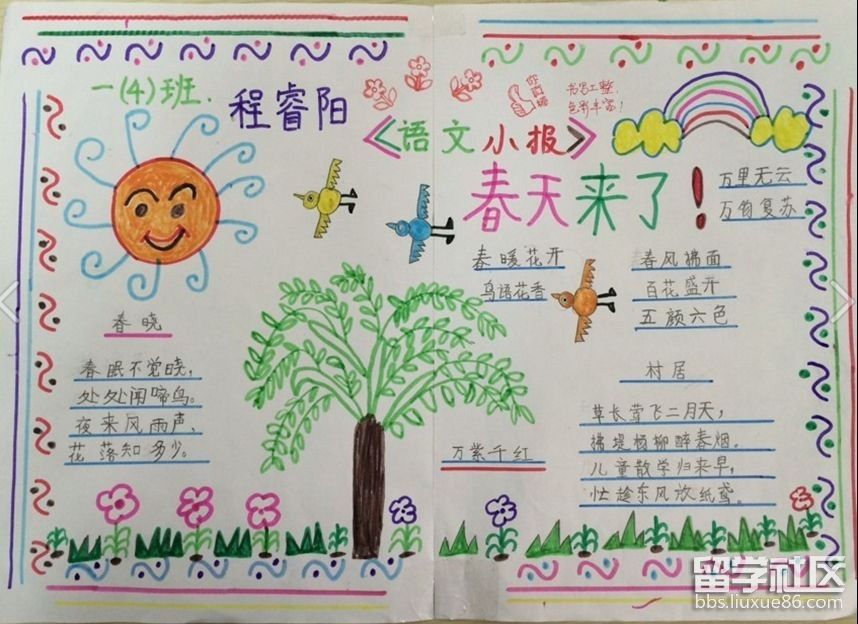 一(4)班.
程睿阳
你真棒
书写工整,
色彩丰富!
《语文小报》
春天来了!
万里无云
复苏
春暖花开
鸟语花香
春风拂面
百花盛开
五颜六色
春晓
春眠不觉晓,
处处闻啼鸟。
夜来风雨声,
花落知多少。
万紫千红
村居
草长莺飞二月天,
拂堤杨柳醉春烟。
儿童散学归来早,
忙趁东风放纸鸢。
留学社区
bbs.liuxue86.com